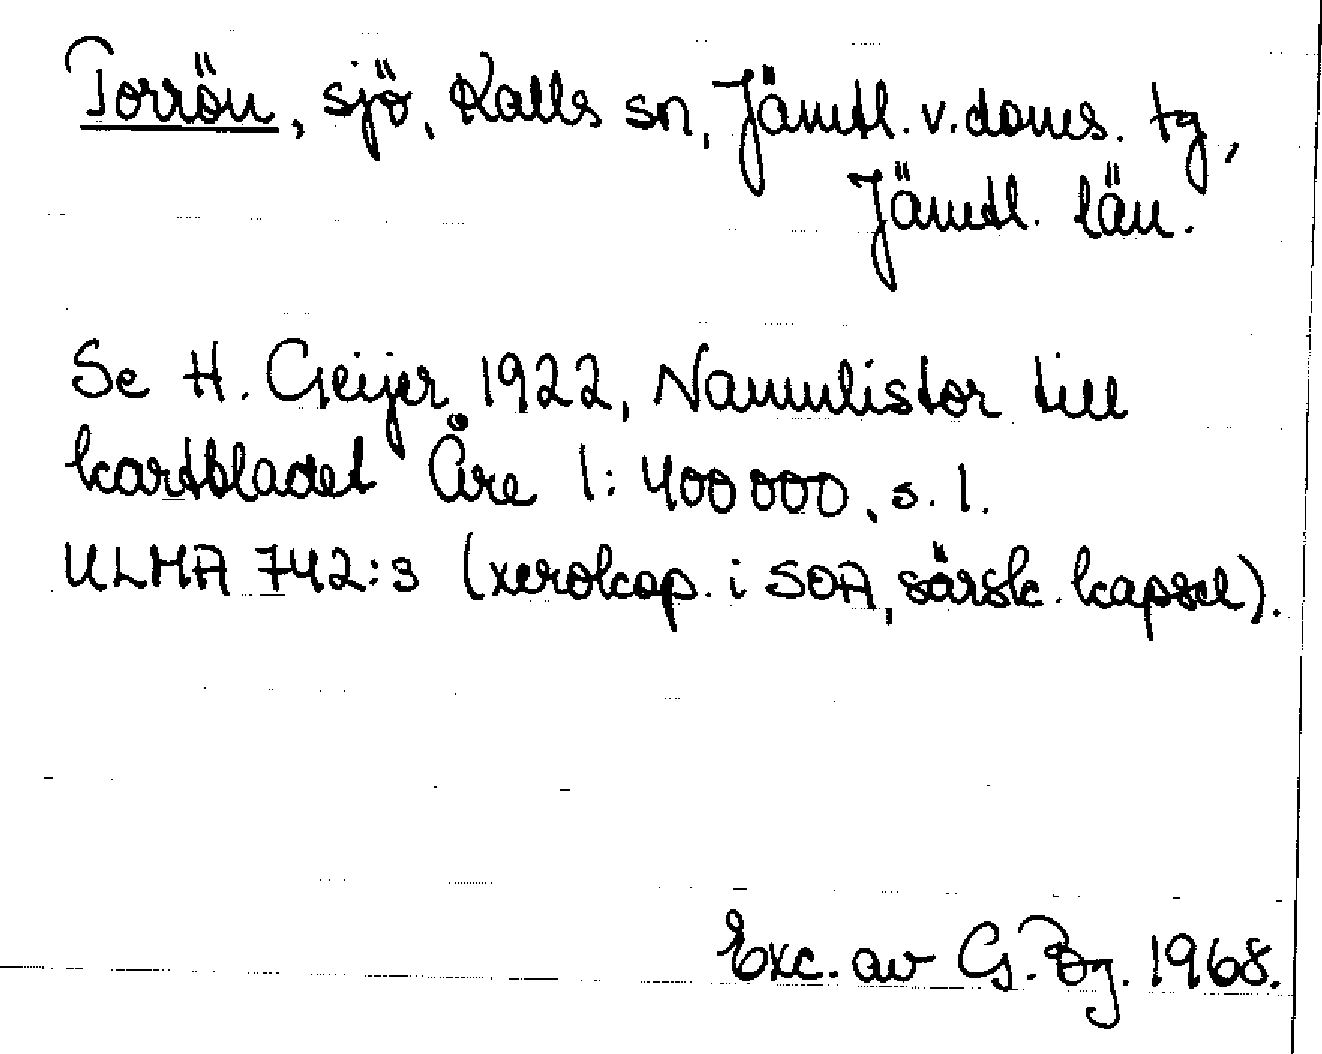 Torrön, sjö, Kalls sn, Jämtl. v. doms. tg,
Jämtl. län.
Se H. Geijer 1922, Namnlistor till
kartbladet Åre 1:400000, s. 1.
ULMA 742:3 (xerokop. i SOA, särsk. kapsel).
Exc. av G. Bg. 1968.